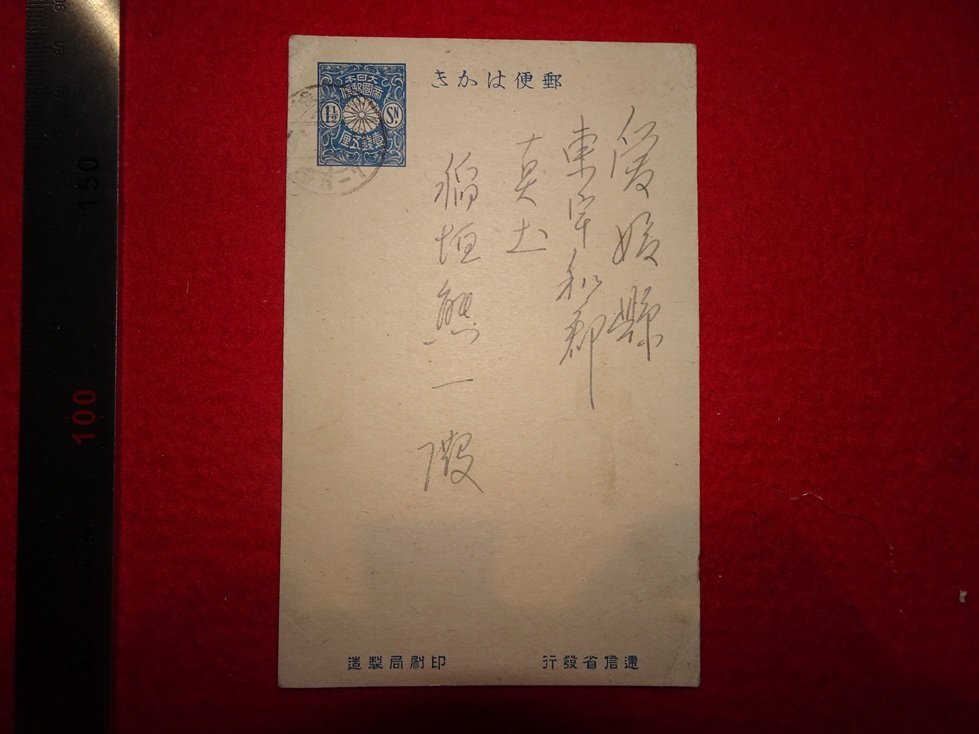 郵便はかき
大日本
帝國郵便
1½ SN.
壹錢五厘
愛媛縣
東宇和郡
真土
稲垣熊一殿
遞信省發行
印刷局製造
150
100
50